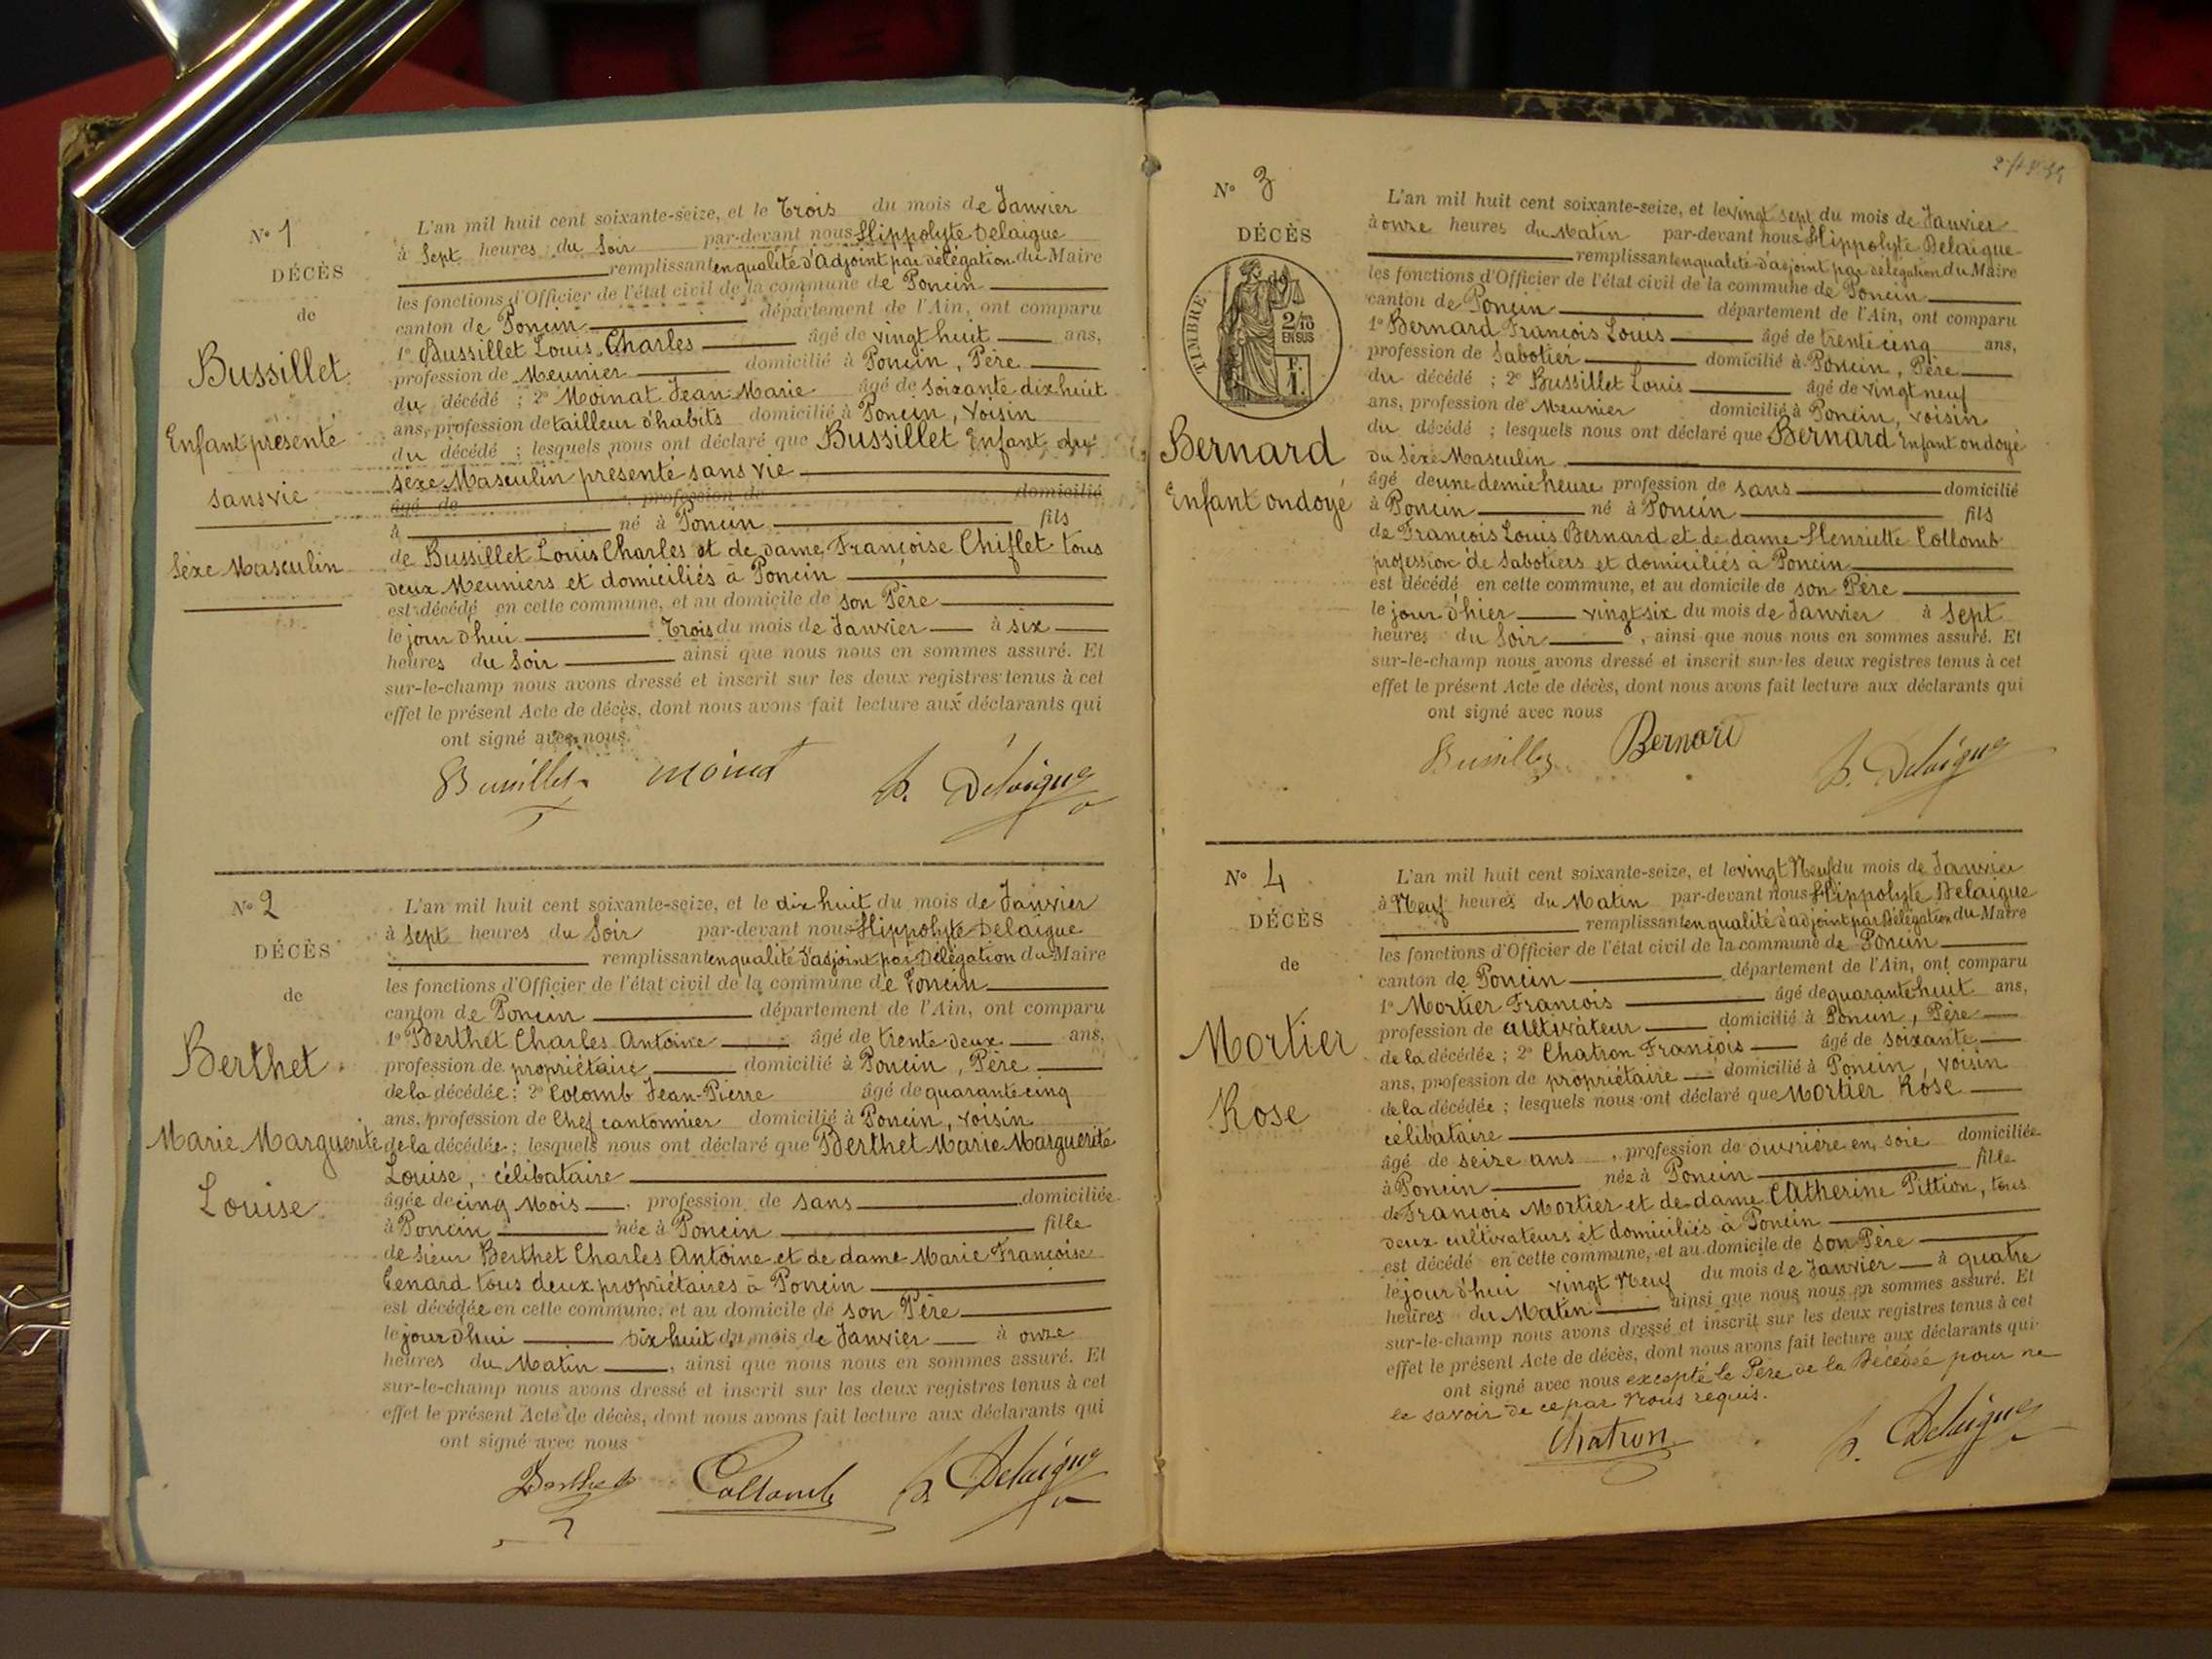 N° 1
DÉCÈS
de
Bussillet
Enfant présenté
sans vie
Séxe Masculin
L'an mil huit cent soixante-seize, et le Trois du mois de Janvier
à Sept heures du Soir par-devant nous Hippolyte Delaigue
remplissant en qualité d'Adjoint par délégation du Maire
les fonctions d'Officier de l'état civil de la commune de Poncin
canton de Poncin département de l'Ain, ont comparu
1° Bussillet Louis Charles âgé de vingt huit ans,
profession de Meunier domicilié à Poncin, Père
du décédé ; 2° Moinat Jean Marie âgé de Soixante dix huit
ans, profession de tailleur d'habits domicilié à Poncin, Voisin
du décédé ; lesquels nous ont déclaré que Bussillet Enfant du
sexe Masculin présenté sans vie
âgé de profession de domicilié
à né à Poncin fils
de Bussillet Louis Charles et de dame Françoise Chiflet tous
deux Meuniers et domiciliés à Poncin
est décédé en cette commune, et au domicile de son Père
le jour d'hui Trois du mois de Janvier à six
heures du Soir ainsi que nous nous en sommes assuré. Et
sur-le-champ nous avons dressé et inscrit sur les deux registres tenus à cet
effet le présent Acte de décès, dont nous avons fait lecture aux déclarants qui
ont signé avec nous.
Bussillet moinat h. Delaigue
N° 2
DÉCÈS
de
Berthet
Marie Marguerite
Louise
L'an mil huit cent soixante-seize, et le dix huit du mois de Janvier
à Sept heures du Soir par-devant nous Hippolyte Delaigue
remplissant en qualité d'adjoint par Délégation du Maire
les fonctions d'Officier de l'état civil de la commune de Poncin
canton de Poncin département de l'Ain, ont comparu
1° Berthet Charles Antoine âgé de trente deux ans,
profession de propriétaire domicilié à Poncin, Père
de la décédée ; 2° Colomb Jean-Pierre âgé de quarante cinq
ans, profession de Chef cantonnier domicilié à Poncin, voisin
de la décédée ; lesquels nous ont déclaré que Berthet Marie Marguerite
Louise, célibataire
âgée de cinq Mois, profession de sans domiciliée
à Poncin née à Poncin fille
de Sieur Berthet Charles Antoine et de dame Marie Françoise
Tenard tous deux propriétaires à Poncin
est décédée en cette commune, et au domicile de son Père
le jour d'hui Dix huit du mois de Janvier à onze
heures du Matin, ainsi que nous nous en sommes assuré. Et
sur-le-champ nous avons dressé et inscrit sur les deux registres tenus à cet
effet le présent Acte de décès, dont nous avons fait lecture aux déclarants qui
ont signé avec nous
Berthet Collomb h. Delaigue
N° 3
DÉCÈS
de
TIMBRE
2/10
EN SUS
F.
1.
Bernard
Enfant ondoyé
L'an mil huit cent soixante-seize, et le vingt sept du mois de Janvier
à onze heures du Matin par-devant nous Hippolyte Delaigue
remplissant en qualité d'adjoint par délégation du Maire
les fonctions d'Officier de l'état civil de la commune de Poncin
canton de Poncin département de l'Ain, ont comparu
1° Bernard François Louis âgé de trente cinq ans,
profession de Sabotier domicilié à Poncin, Père
du décédé ; 2° Bussillet Louis âgé de vingt neuf
ans, profession de Meunier domicilié à Poncin, voisin
du décédé ; lesquels nous ont déclaré que Bernard Enfant ondoyé
du Séxe Masculin
âgé de une demie heure profession de sans domicilié
à Poncin né à Poncin fils
de François Louis Bernard et de dame Henriette Collomb
profession de Sabotiers et domiciliés à Poncin
est décédé en cette commune, et au domicile de son Père
le jour d'hier vingt six du mois de Janvier à Sept
heures du Soir, ainsi que nous nous en sommes assuré. Et
sur-le-champ nous avons dressé et inscrit sur les deux registres tenus à cet
effet le présent Acte de décès, dont nous avons fait lecture aux déclarants qui
ont signé avec nous
Bussillet Bernard h. Delaigue
N° 4
DÉCÈS
de
Mortier
Rose
L'an mil huit cent soixante-seize, et le vingt Neuf du mois de Janvier
à Neuf heures du Matin par-devant nous Hippolyte Delaigue
remplissant en qualité d'adjoint par Délégation du Maire
les fonctions d'Officier de l'état civil de la commune de Poncin
canton de Poncin département de l'Ain, ont comparu
1° Mortier François âgé de quarante huit ans,
profession de cultivateur domicilié à Poncin, Père
de la décédée ; 2° Chatron François âgé de soixante
ans, profession de propriétaire domicilié à Poncin, voisin
de la décédée ; lesquels nous ont déclaré que Mortier Rose
célibataire
âgé de seize ans, profession de ouvrière en soie domiciliée
à Poncin née à Poncin fille
de François Mortier et de dame Catherine Pittion, tous
deux cultivateurs et domiciliés à Poncin
est décédé en cette commune, et au domicile de son Père
le jour d'hui vingt Neuf du mois de Janvier à quatre
heures du Matin ainsi que nous nous en sommes assuré. Et
sur-le-champ nous avons dressé et inscrit sur les deux registres tenus à cet
effet le présent Acte de décès, dont nous avons fait lecture aux déclarants qui
ont signé avec nous excepté le Père de la Décédée pour ne
le savoir de ce par Nous requis.
Chatron h. Delaigue